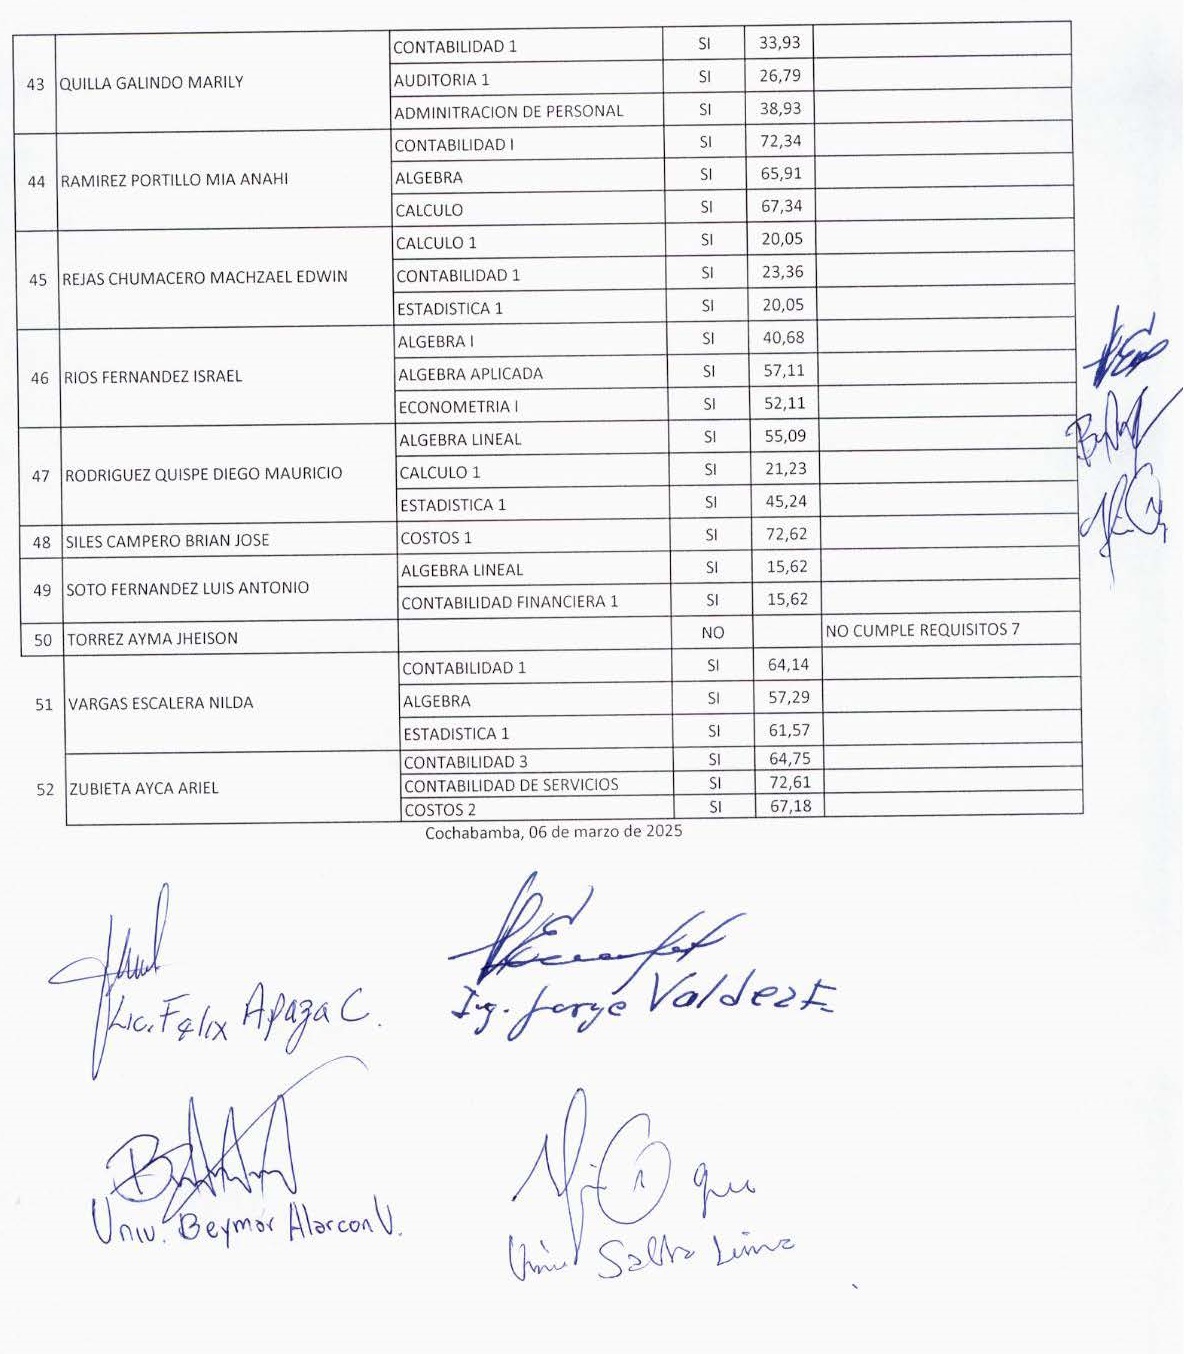 CONTABILIDAD 1 SI 33,93
43 QUILLA GALINDO MARILY AUDITORIA 1 SI 26,79
ADMINITRACION DE PERSONAL SI 38,93
CONTABILIDAD I SI 72,34
44 RAMIREZ PORTILLO MIA ANAHI ALGEBRA SI 65,91
CALCULO SI 67,34
CALCULO 1 SI 20,05
45 REJAS CHUMACERO MACHZAEL EDWIN CONTABILIDAD 1 SI 23,36
ESTADISTICA 1 SI 20,05
ALGEBRA I SI 40,68
46 RIOS FERNANDEZ ISRAEL ALGEBRA APLICADA SI 57,11
ECONOMETRIA I SI 52,11
ALGEBRA LINEAL SI 55,09
47 RODRIGUEZ QUISPE DIEGO MAURICIO CALCULO 1 SI 21,23
ESTADISTICA 1 SI 45,24
48 SILES CAMPERO BRIAN JOSE COSTOS 1 SI 72,62
ALGEBRA LINEAL SI 15,62
49 SOTO FERNANDEZ LUIS ANTONIO
CONTABILIDAD FINANCIERA 1 SI 15,62
50 TORREZ AYMA JHEISON NO NO CUMPLE REQUISITOS 7
CONTABILIDAD 1 SI 64,14
51 VARGAS ESCALERA NILDA ALGEBRA SI 57,29
ESTADISTICA 1 SI 61,57
CONTABILIDAD 3 SI 64,75
52 ZUBIETA AYCA ARIEL CONTABILIDAD DE SERVICIOS SI 72,61
COSTOS 2 SI 67,18
Cochabamba, 06 de marzo de 2025
Lic. Felix Apaza C.
Ing. Jorge Valdez F.
Univ. Beymar Alarcon V.